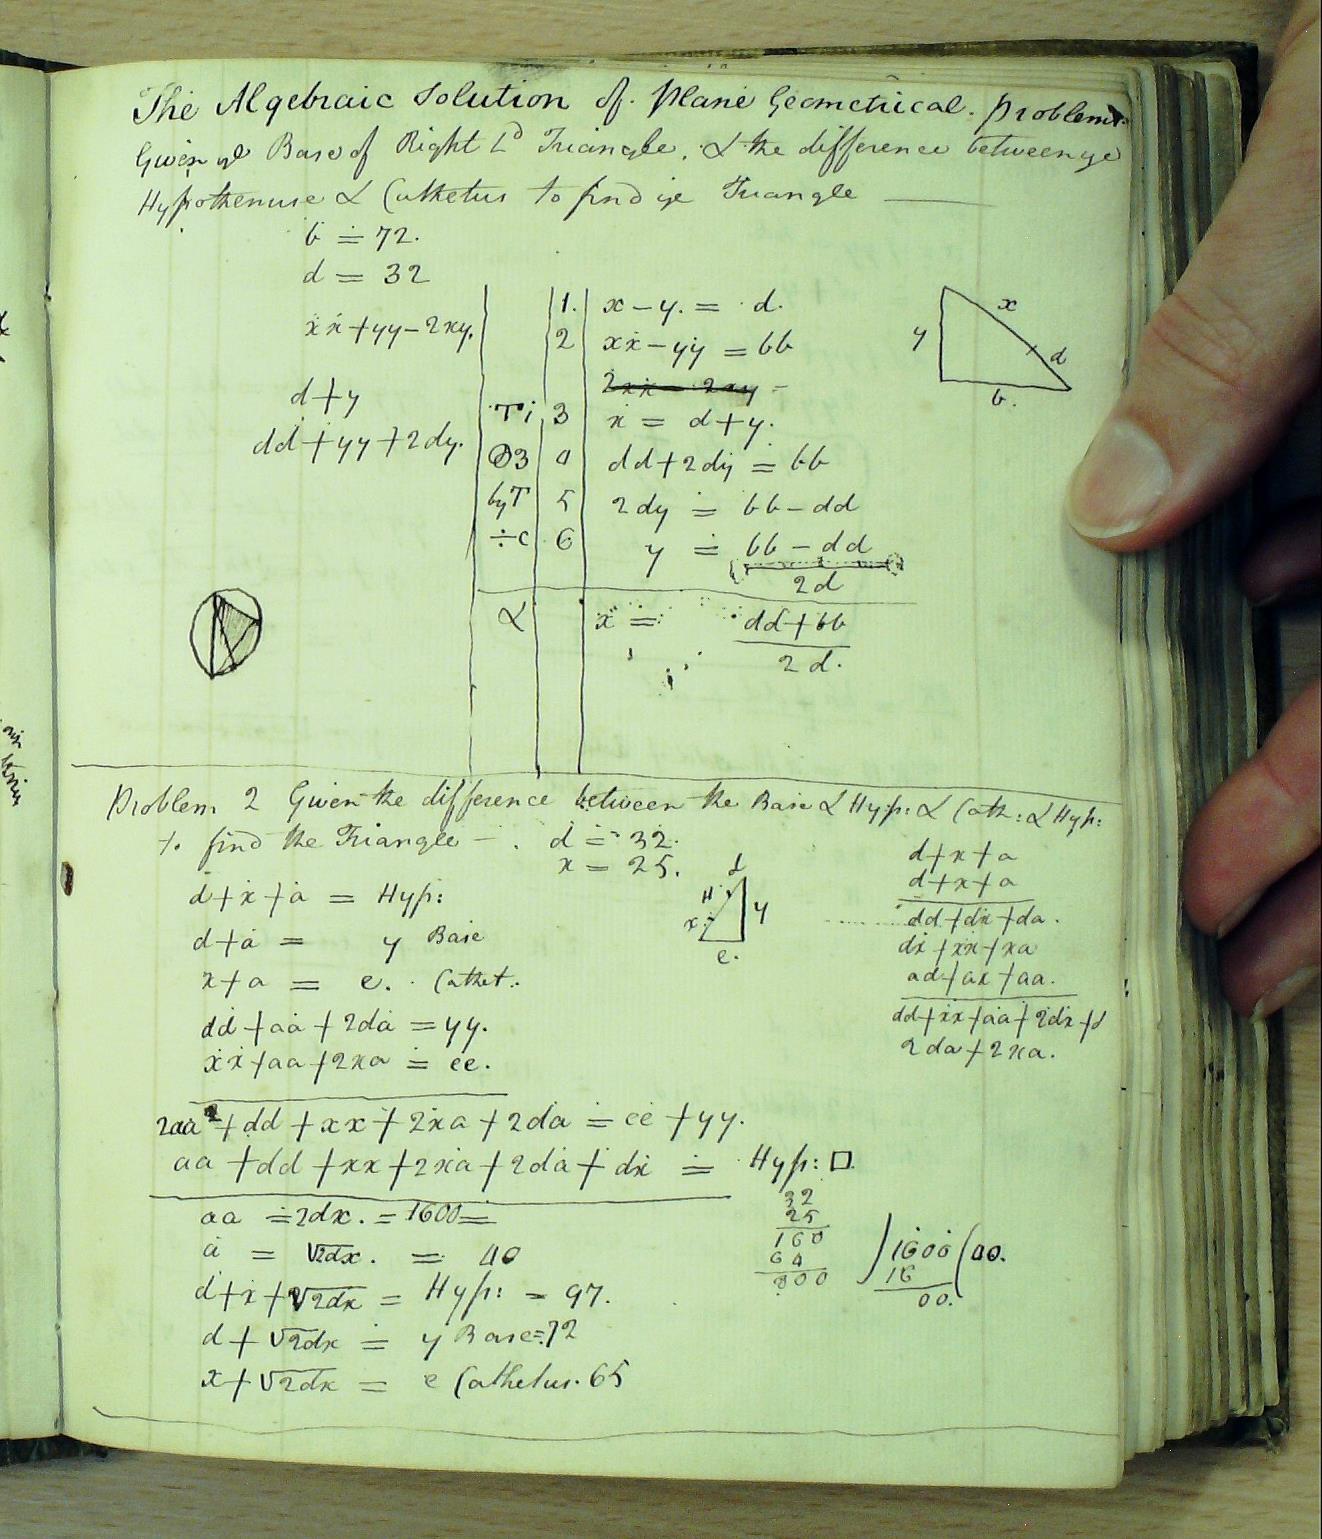 The Algebraic Solution of Plane Geometrical Problems
Given ye Base of Right Ld Triangle, & the difference between ye
Hypothenuse & Cathetus to find ye Triangle
b = 72.
d = 32
xx + yy - 2xy.
d + y
dd + yy + 2dy.
1. x - y. = d.
2 xx - yy = bb
2xx - 2xy =
Ti 3 x = d + y.
3 4 dd + 2dy = bb
by T 5 2dy = bb - dd
÷c 6 y = bb - dd
2d
& x = dd + bb
2d.
y x d b.
Problem 2 Given the difference between the Base & Hyp: & Cath: & Hyp:
to find the Triangle - . d = 32.
x = 25.
d + x + a = Hyp:
d + a = y Base
x + a = e. Cathet.
dd + aa + 2da = yy.
xx + aa + 2xa = ee.
2aa + dd + xx + 2xa + 2da = ee + yy.
aa + dd + xx + 2xa + 2da + dx = Hyp: □
aa = 2dx. = 1600 =
a = √2dx. = 40
d + x + √2dx = Hyp: = 97.
d + √2dx = y Base = 72
x + √2dx = e Cathetus. 65
d H x y e.
d + x + a
d + x + a
dd + dx + da.
dx + xx + xa
ad + ax + aa.
dd + xx + aa + 2dx +
2da + 2xa.
32
25
160
64
800
) 1600 ( 40.
16
00.